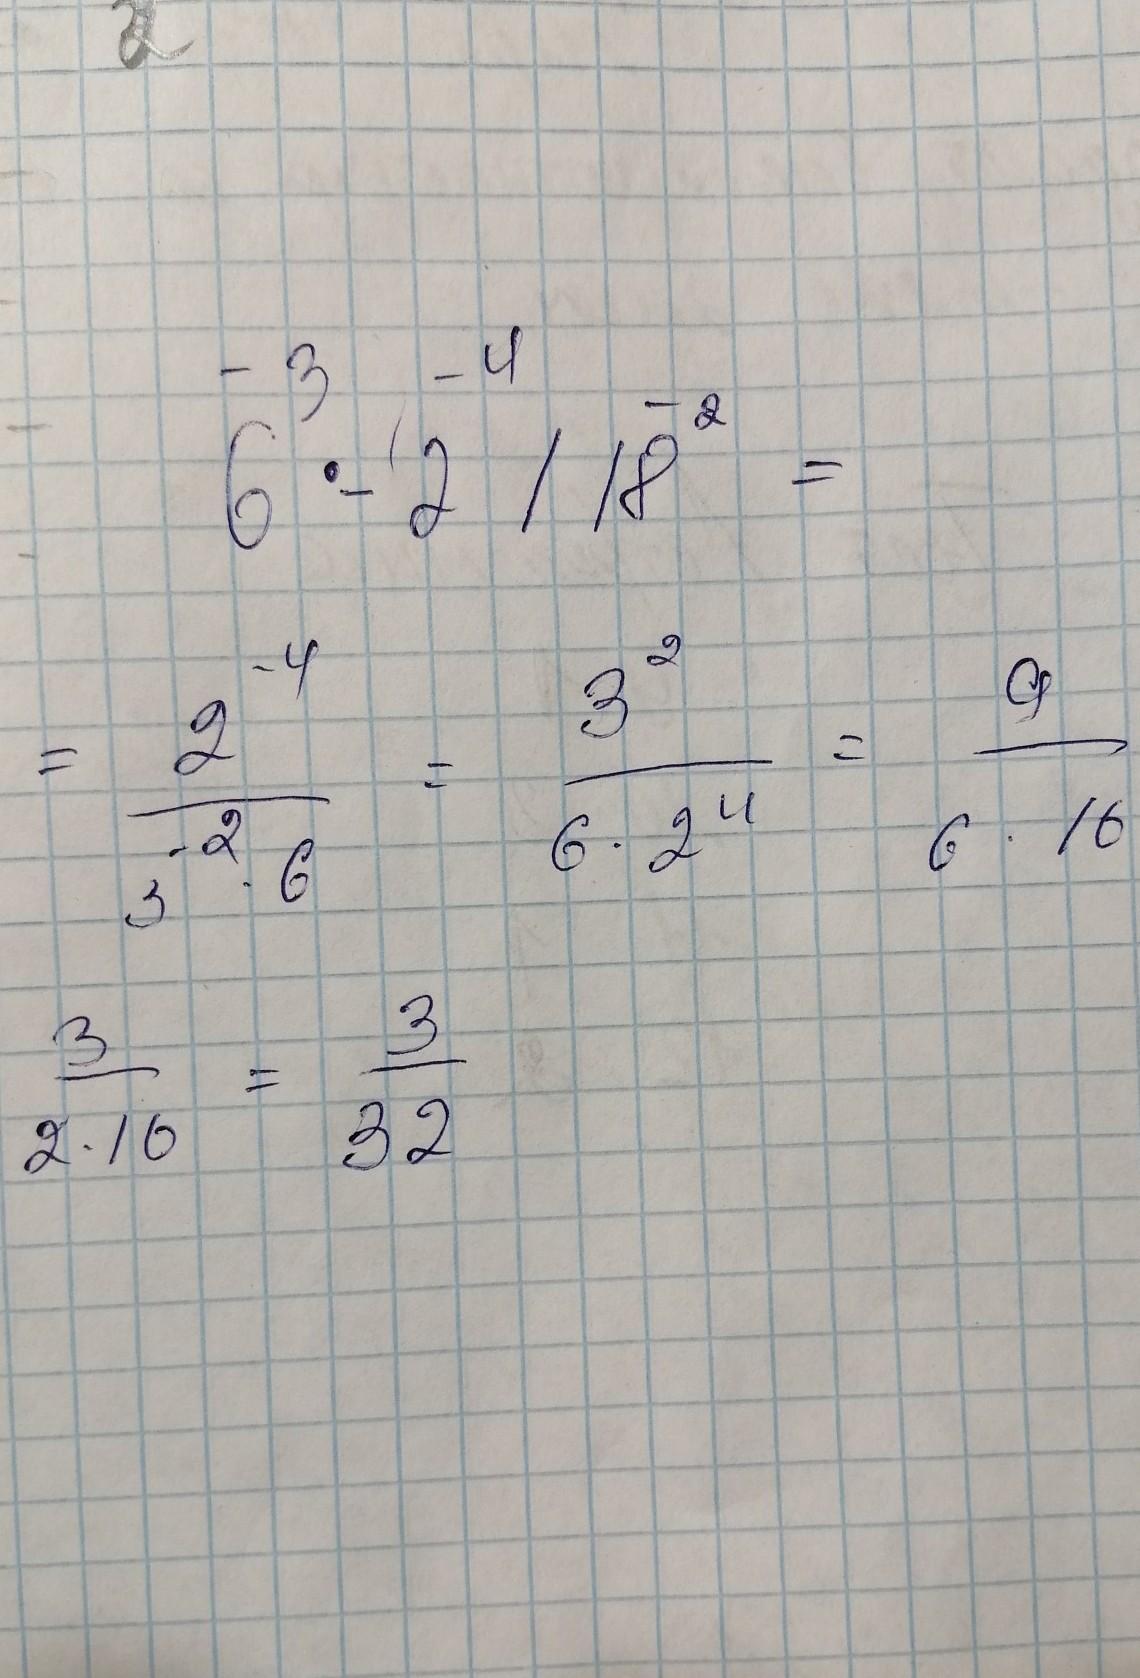 2
6⁻³ · - 2⁻⁴ / 18⁻² =
= 2⁻⁴ / 3⁻² · 6 = 3² / 6 · 2⁴ = 9 / 6 · 16
3 / 2 · 16 = 3 / 32